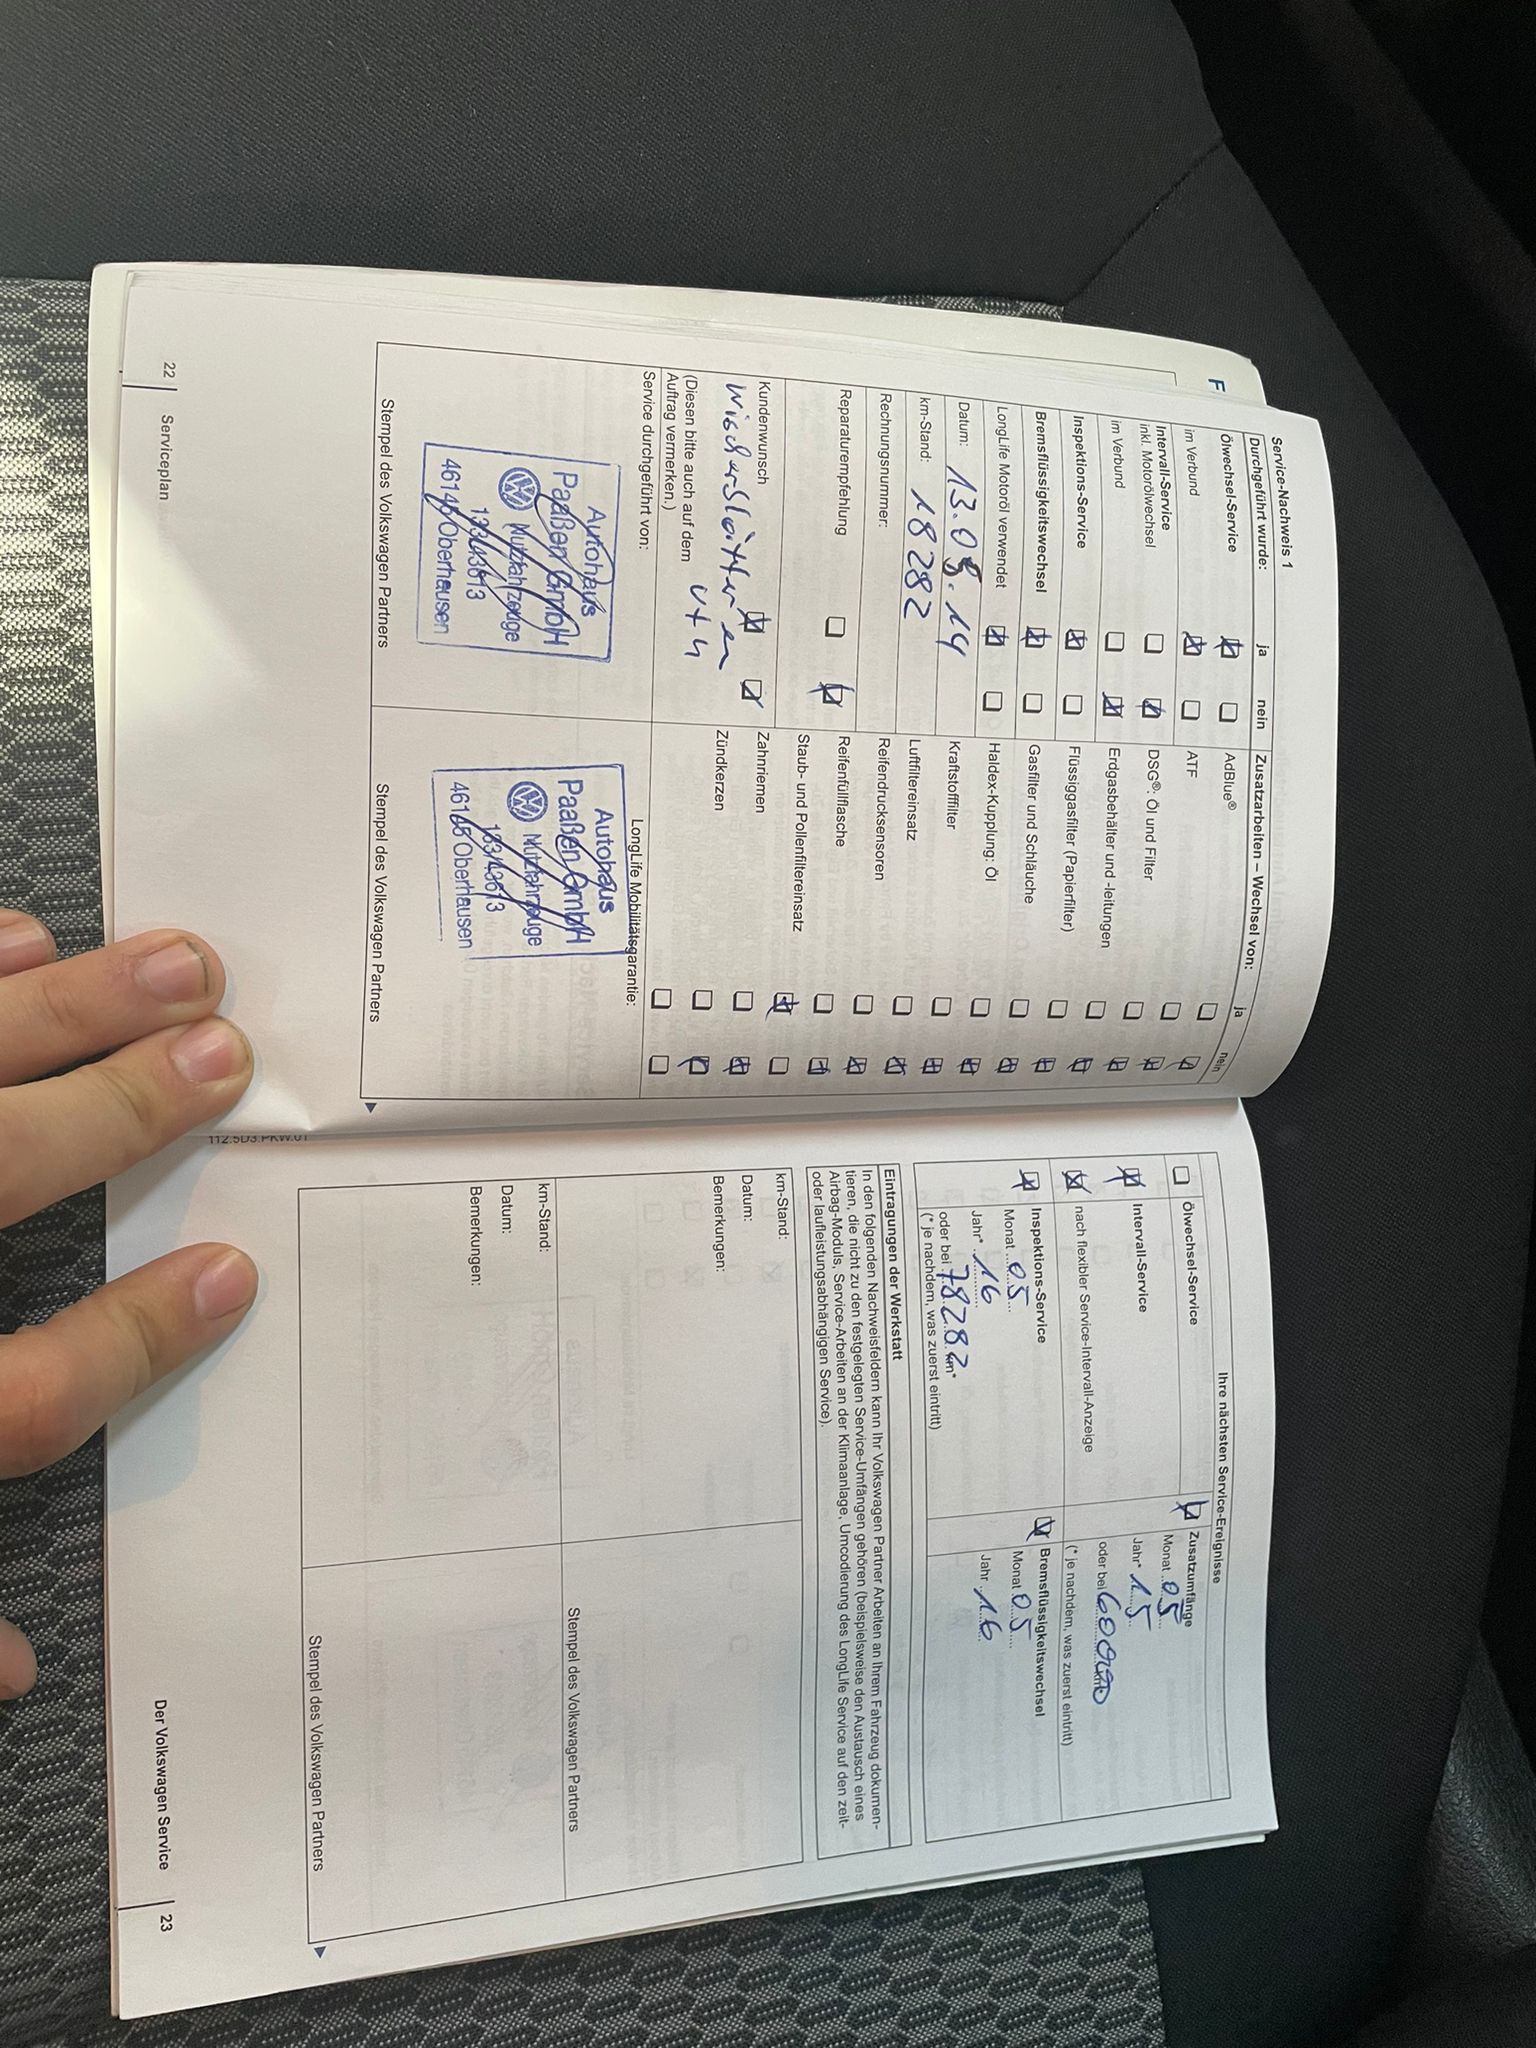 F
Service-Nachweis 1
Durchgeführt wurde: ja nein
Ölwechsel-Service
im Verbund
Intervall-Service
inkl. Motorölwechsel
im Verbund
Inspektions-Service
Bremsflüssigkeitswechsel
LongLife Motoröl verwendet
Datum: 13.08.14
km-Stand: 18282
Rechnungsnummer:
Reparaturempfehlung
Kundenwunsch
Wischerblätter en
(Diesen bitte auch auf dem
Auftrag vermerken.)
v+h
Service durchgeführt von:
Autohaus
Paaßen GmbH
Nutzfahrzeuge
133/43613
46145 Oberhausen
Stempel des Volkswagen Partners
Zusatzarbeiten – Wechsel von: ja nein
AdBlue®
ATF
DSG®: Öl und Filter
Erdgasbehälter und -leitungen
Flüssiggasfilter (Papierfilter)
Gasfilter und Schläuche
Haldex-Kupplung: Öl
Kraftstofffilter
Luftfiltereinsatz
Reifendrucksensoren
Reifenfüllflasche
Staub- und Pollenfiltereinsatz
Zahnriemen
Zündkerzen
LongLife Mobilitätsgarantie:
Autohaus
Paaßen GmbH
Nutzfahrzeuge
133/43613
46145 Oberhausen
Stempel des Volkswagen Partners
22 Serviceplan
112.5D3.PKW.01
Ihre nächsten Service-Ereignisse
Ölwechsel-Service
Intervall-Service
nach flexibler Service-Intervall-Anzeige
Zusatzumfänge
Monat 05
Jahr* 15
oder bei 60000 km*
(* je nachdem, was zuerst eintritt)
Inspektions-Service
Monat 05
Jahr* 16
oder bei 78282 km*
(* je nachdem, was zuerst eintritt)
Bremsflüssigkeitswechsel
Monat 05
Jahr 16
Eintragungen der Werkstatt
In den folgenden Nachweisfeldern kann Ihr Volkswagen Partner Arbeiten an Ihrem Fahrzeug dokumen-
tieren, die nicht zu den festgelegten Service-Umfängen gehören (beispielsweise den Austausch eines
Airbag-Moduls, Service-Arbeiten an der Klimaanlage, Umcodierung des LongLife Service auf den zeit-
oder laufleistungsabhängigen Service).
km-Stand:
Datum:
Bemerkungen:
Stempel des Volkswagen Partners
km-Stand:
Datum:
Bemerkungen:
Stempel des Volkswagen Partners
Der Volkswagen Service 23